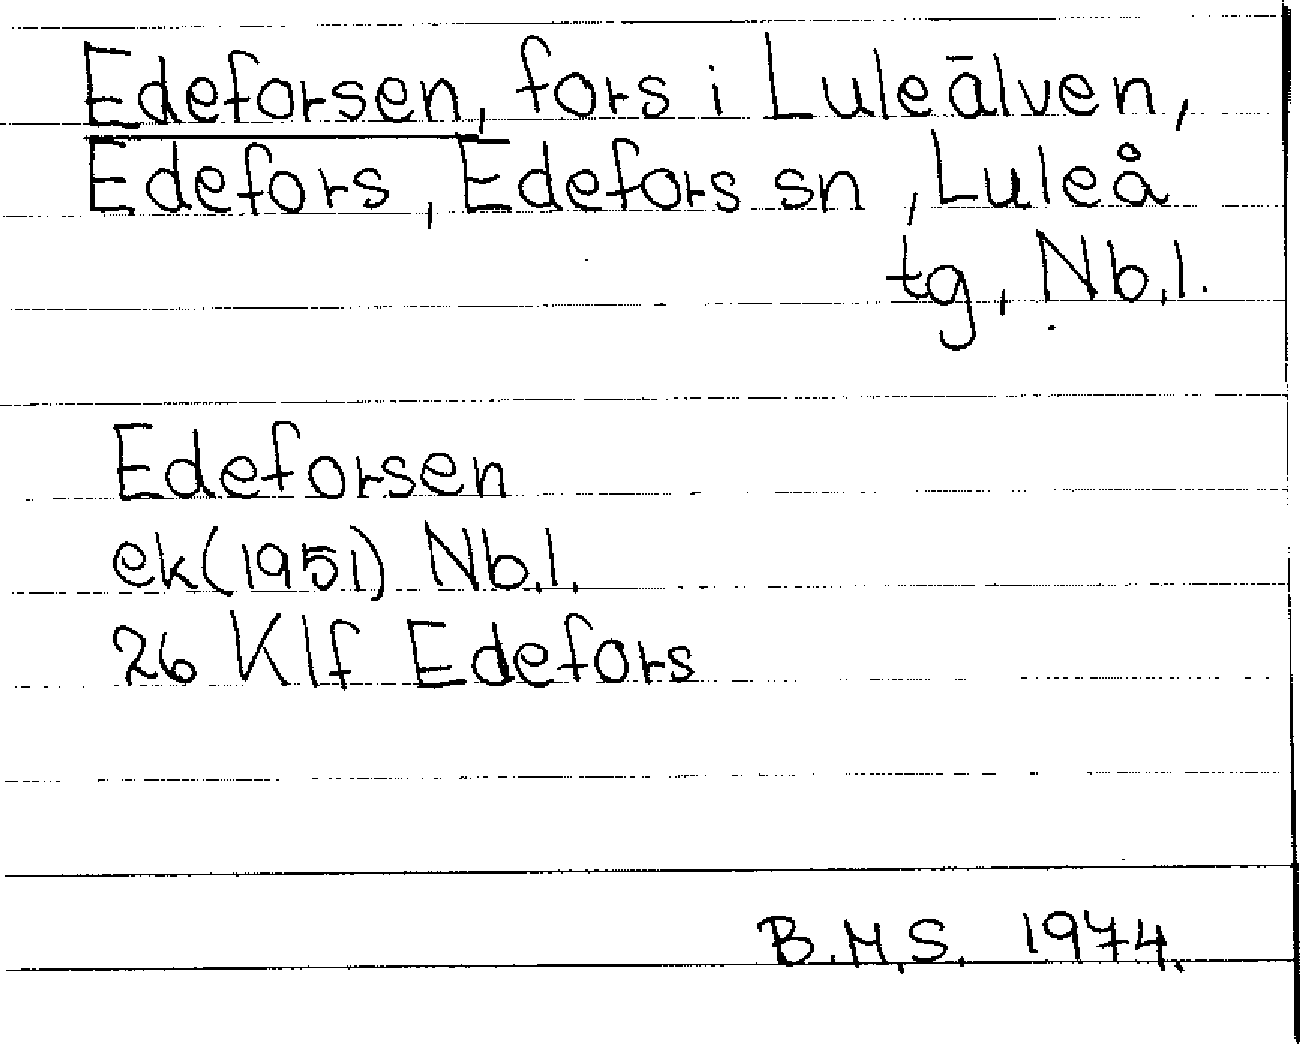 Edeforsen, fors i Luleälven,
Edefors, Edefors sn, Luleå
tg, Nb.l.
Edeforsen
ek(1951) Nb.l.
26 Klf Edefors
B.M.S. 1974.